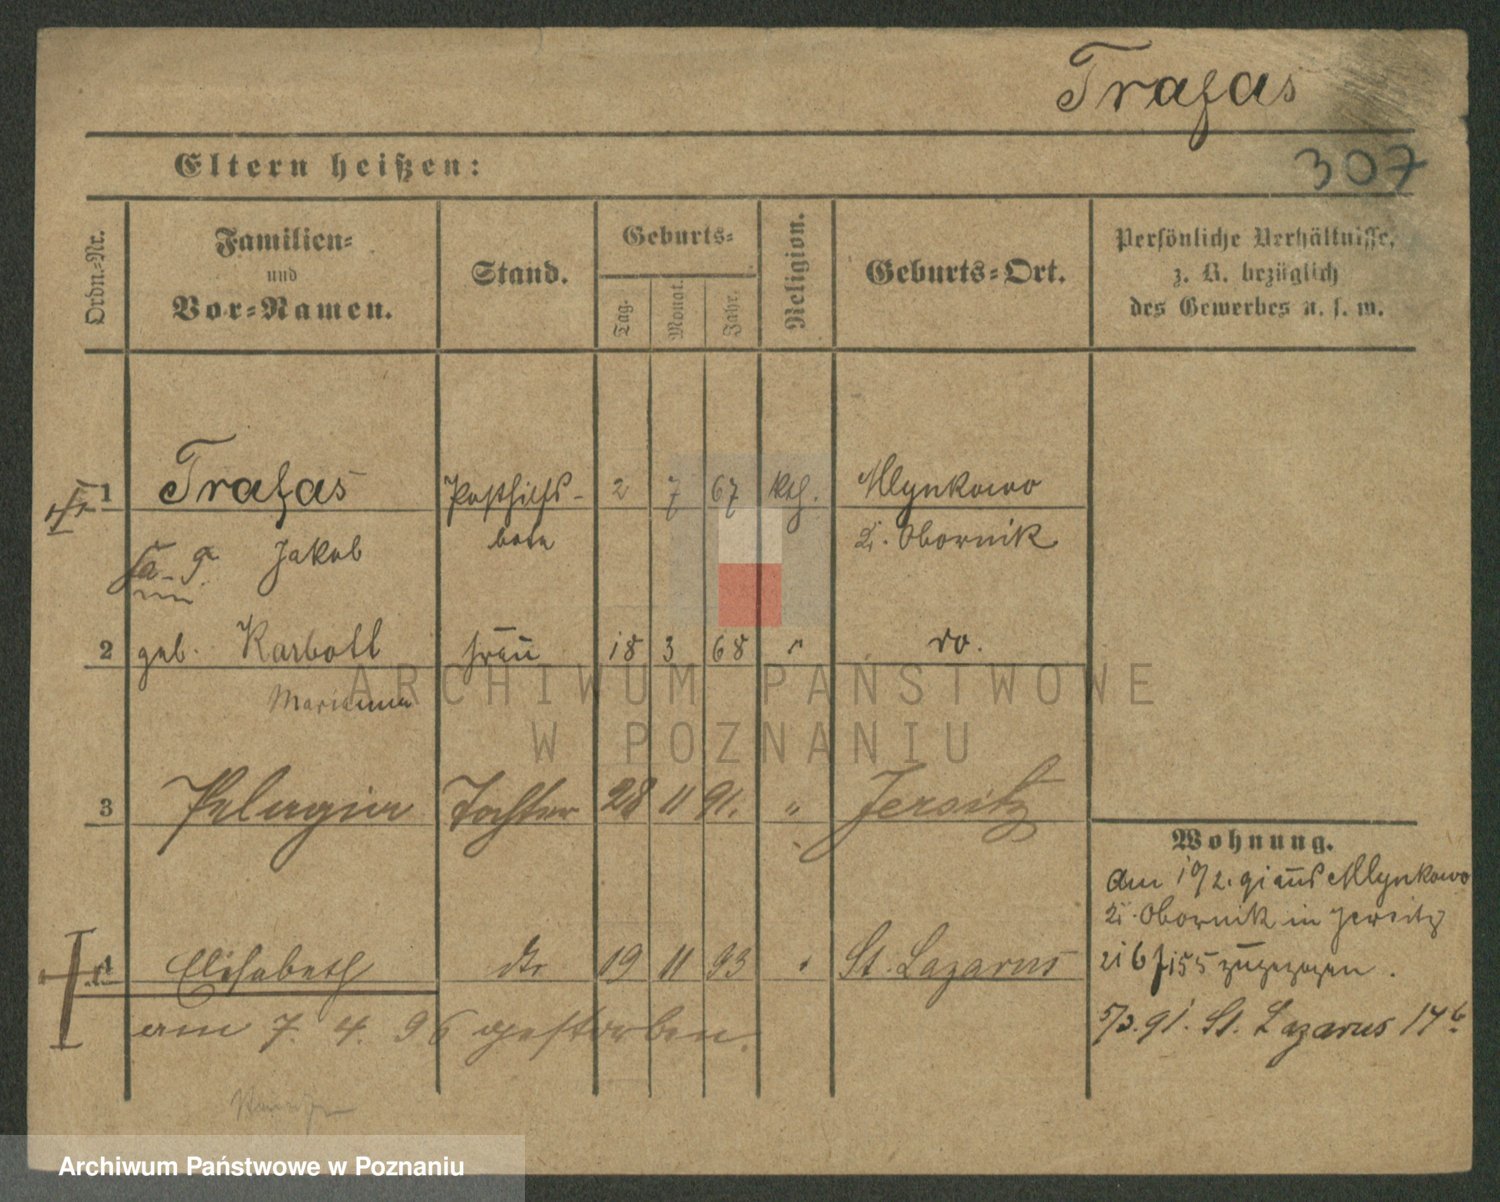 Trafas
307
Eltern heißen:
Ordn.=Nr.
Familien=
und
Vor=Namen.
Stand.
Geburts=
Tag.
Monat.
Jahr.
Religion.
Geburts=Ort.
Persönliche Verhältnisse,
z. B. bezüglich
des Gewerbes u. s. w.
1 Trafas Posthilfs- 2 7 67 kth. Mlynkowo
Jakob bote Obornik
2 geb. Karbott Frau 18 3 68 " do.
Marianna
3 Pelagia Tochter 28 11 91. " Jersitz
Wohnung.
am 19/2. 91 aus Mlynkowo
Obornik in Jersitz
155 zugezogen.
4 Elisabeth dto 19 11 93 " St. Lazarus
am 7. 4. 96 gestorben.
5/3. 91. St. Lazarus 17b
ARCHIWUM PAŃSTWOWE
W POZNANIU
Archiwum Państwowe w Poznaniu